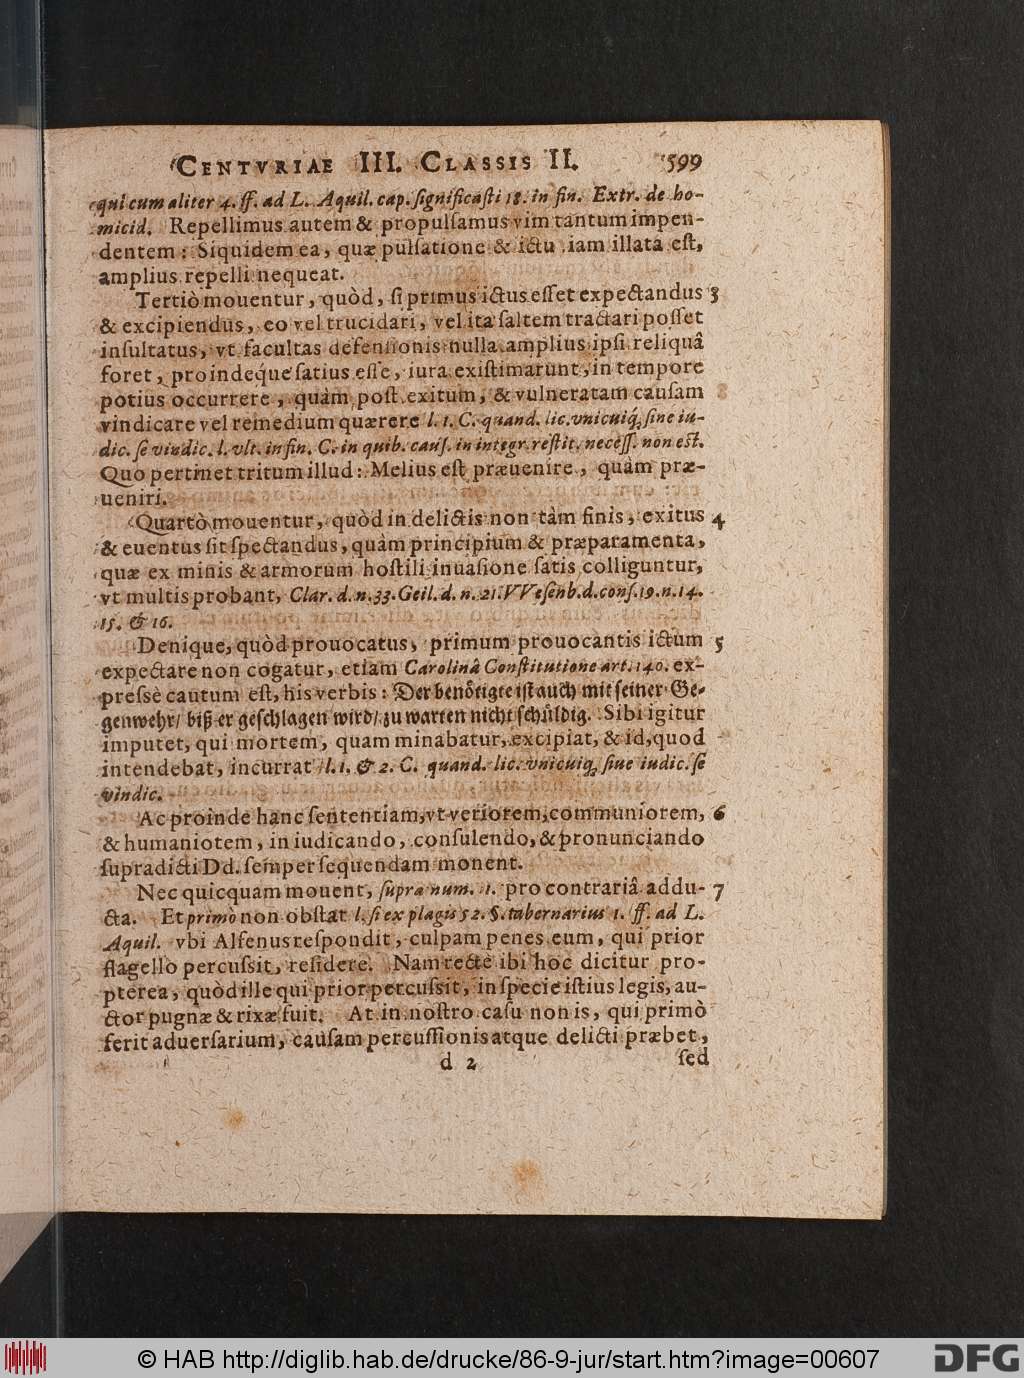 CENTVRIAE III. CLASSIS II. 599
qui cum aliter 4. ff. ad L. Aquil. cap. ſignificaſti 18. in fin. Extr. de ho-
micid. Repellimus autem & propulſamus vim tantum impen-
dentem: Siquidem ea, quæ pulſatione & ictu iam illata eſt,
amplius repelli nequeat.
Tertiò mouentur, quòd, ſi primus ictus eſſet expectandus 3
& excipiendus, eo vel trucidari, vel ita ſaltem tractari poſſet
inſultatus, vt facultas defenſionis nulla amplius ipſi reliquâ
foret, proindeque ſatius eſſe, iura exiſtimarunt, in tempore
potius occurrere, quàm poſt exitum, & vulneratam cauſam
vindicare vel remedium quærere l. 1. C. quand. lic. vnicuiq; ſine iu-
dic. ſe vindic. l. vlt. in fin. C. in quib. cauſ. in integr. reſtit. neceſſ. non eſt.
Quo pertinet tritum illud: Melius eſt præuenire, quàm præ-
ueniri.
Quartò mouentur, quòd in delictis non tàm finis, exitus 4
& euentus ſit ſpectandus, quàm principium & præparamenta,
quæ ex minis & armorum hoſtili inuaſione ſatis colliguntur,
vt multis probant, Clar. d. n. 33. Geil. d. n. 21. VVeſenb. d. conſ. 19. n. 14.
15. & 16.
Denique, quòd prouocatus, primum prouocantis ictum 5
expectare non cogatur, etiam Carolinâ Conſtitutione art. 140. ex-
preſsè cautum eſt, his verbis: Der benötigte iſt auch mit ſeiner Ge-
genwehr/ biß er geſchlagen wird/ zu warten nicht ſchüldig. Sibi igitur
imputet, qui mortem, quam minabatur, excipiat, & id, quod
intendebat, incurrat l. 1. & 2. C. quand. lic. vnicuiq; ſine iudic. ſe
vindic.
Ac proinde hanc ſententiam, vt veriorem, communiorem, 6
& humaniotem, in iudicando, conſulendo, & pronunciando
ſupradicti Dd. ſemper ſequendam monent.
Nec quicquam mouent, ſupra num. 1. pro contrariâ addu- 7
cta. Et primò non obſtat l. ſi ex plagis 52. §. tabernarius 1. ff. ad L.
Aquil. vbi Alfenus reſpondit, culpam penes eum, qui prior
flagello percuſsit, reſidere. Nam rectè ibi hoc dicitur pro-
pterea, quòd ille qui prior percuſsit, in ſpecie iſtius legis, au-
ctor pugnæ & rixæ fuit. At in noſtro caſu non is, qui primò
ferit aduerſarium, cauſam percuſſionis atque delicti præbet,
d 2 ſed
© HAB http://diglib.hab.de/drucke/86-9-jur/start.htm?image=00607
DFG